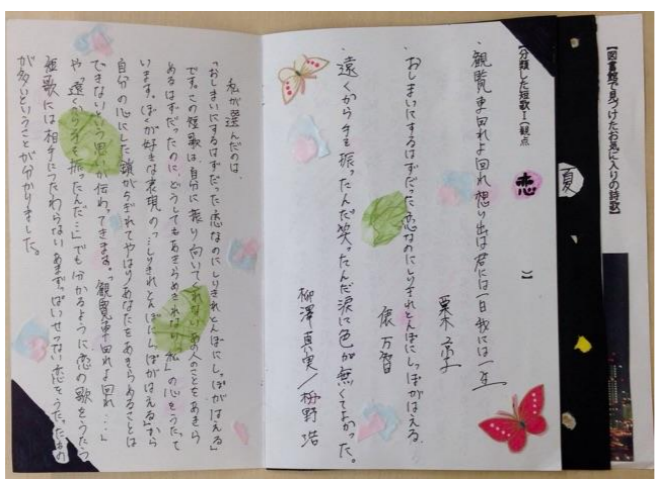 【図書館で見つけたお気に入りの詩歌】
夏
【分類した短歌Ⅰ（観点　恋　）】
・観覧車回れよ回れ想い出は君には一日我には一生
栗木京子
・おしまいにするはずだった恋なのにしりきれとんぼにしっぽがはえる
俵万智
・遠くから手を振ったんだ笑ったんだ涙に色が無くてよかった。
柳澤真実／枡野浩一
私が選んだのは、
「おしまいにするはずだった恋なのにしりきれとんぼにしっぽがはえる」
です。この短歌は、自分に振り向いてくれないあの人のことをあきら
めるはずだったのに、どうしてもあきらめきれない「私」の心をうたって
います。ぼくが好きな表現の「…しりきれとんぼにしっぽがはえる」から
自分の心にした鎖がちぎれてやはりあなたをあきらめることは
できないという思いが伝わってきます。「観覧車回れよ回れ・・・」
や、「遠くから手を振ったんだ…」でも分かるように恋の歌をうたった
短歌には相手につたわらないあまずっぱいせつない恋をうたったもの
が多いということが分かりました。